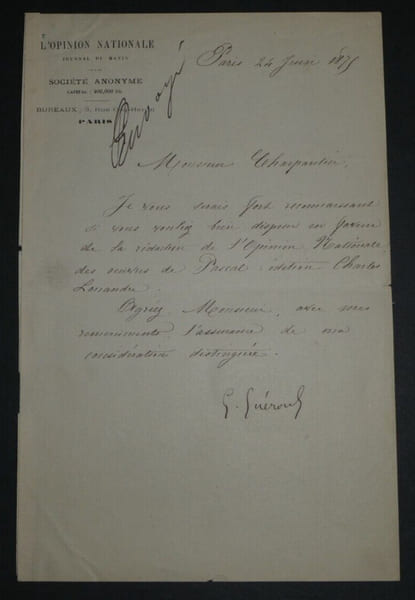 L'OPINION NATIONALE
JOURNAL DU MATIN
SOCIÉTÉ ANONYME
CAPITAL : 200,000 FR.
BUREAUX, 5, RUE
PARIS
Envoyé
Paris 24 Juin 1875
Monsieur Charpentier,
Je vous serais fort reconnaissant
si vous vouliez bien disposer en faveur
de la rédaction de l'Opinion Nationale
des œuvres de Pascal édition Charles
Louandre.
Agréez, Monsieur, avec mes
remerciements l'assurance de ma
considération distinguée.
G. Guéroult